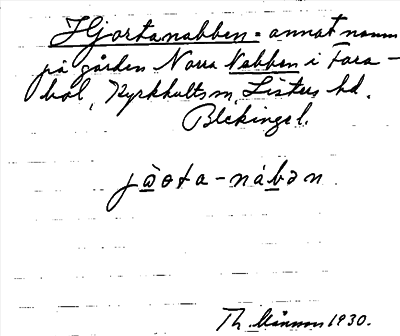 Hjortanabben = annat namn
på gården Norra Nabben i Fara-
bol, Kyrkhults sn, Listers hd.
Blekinge l.
jòọta-nábən.
Th. Månsson 1930.